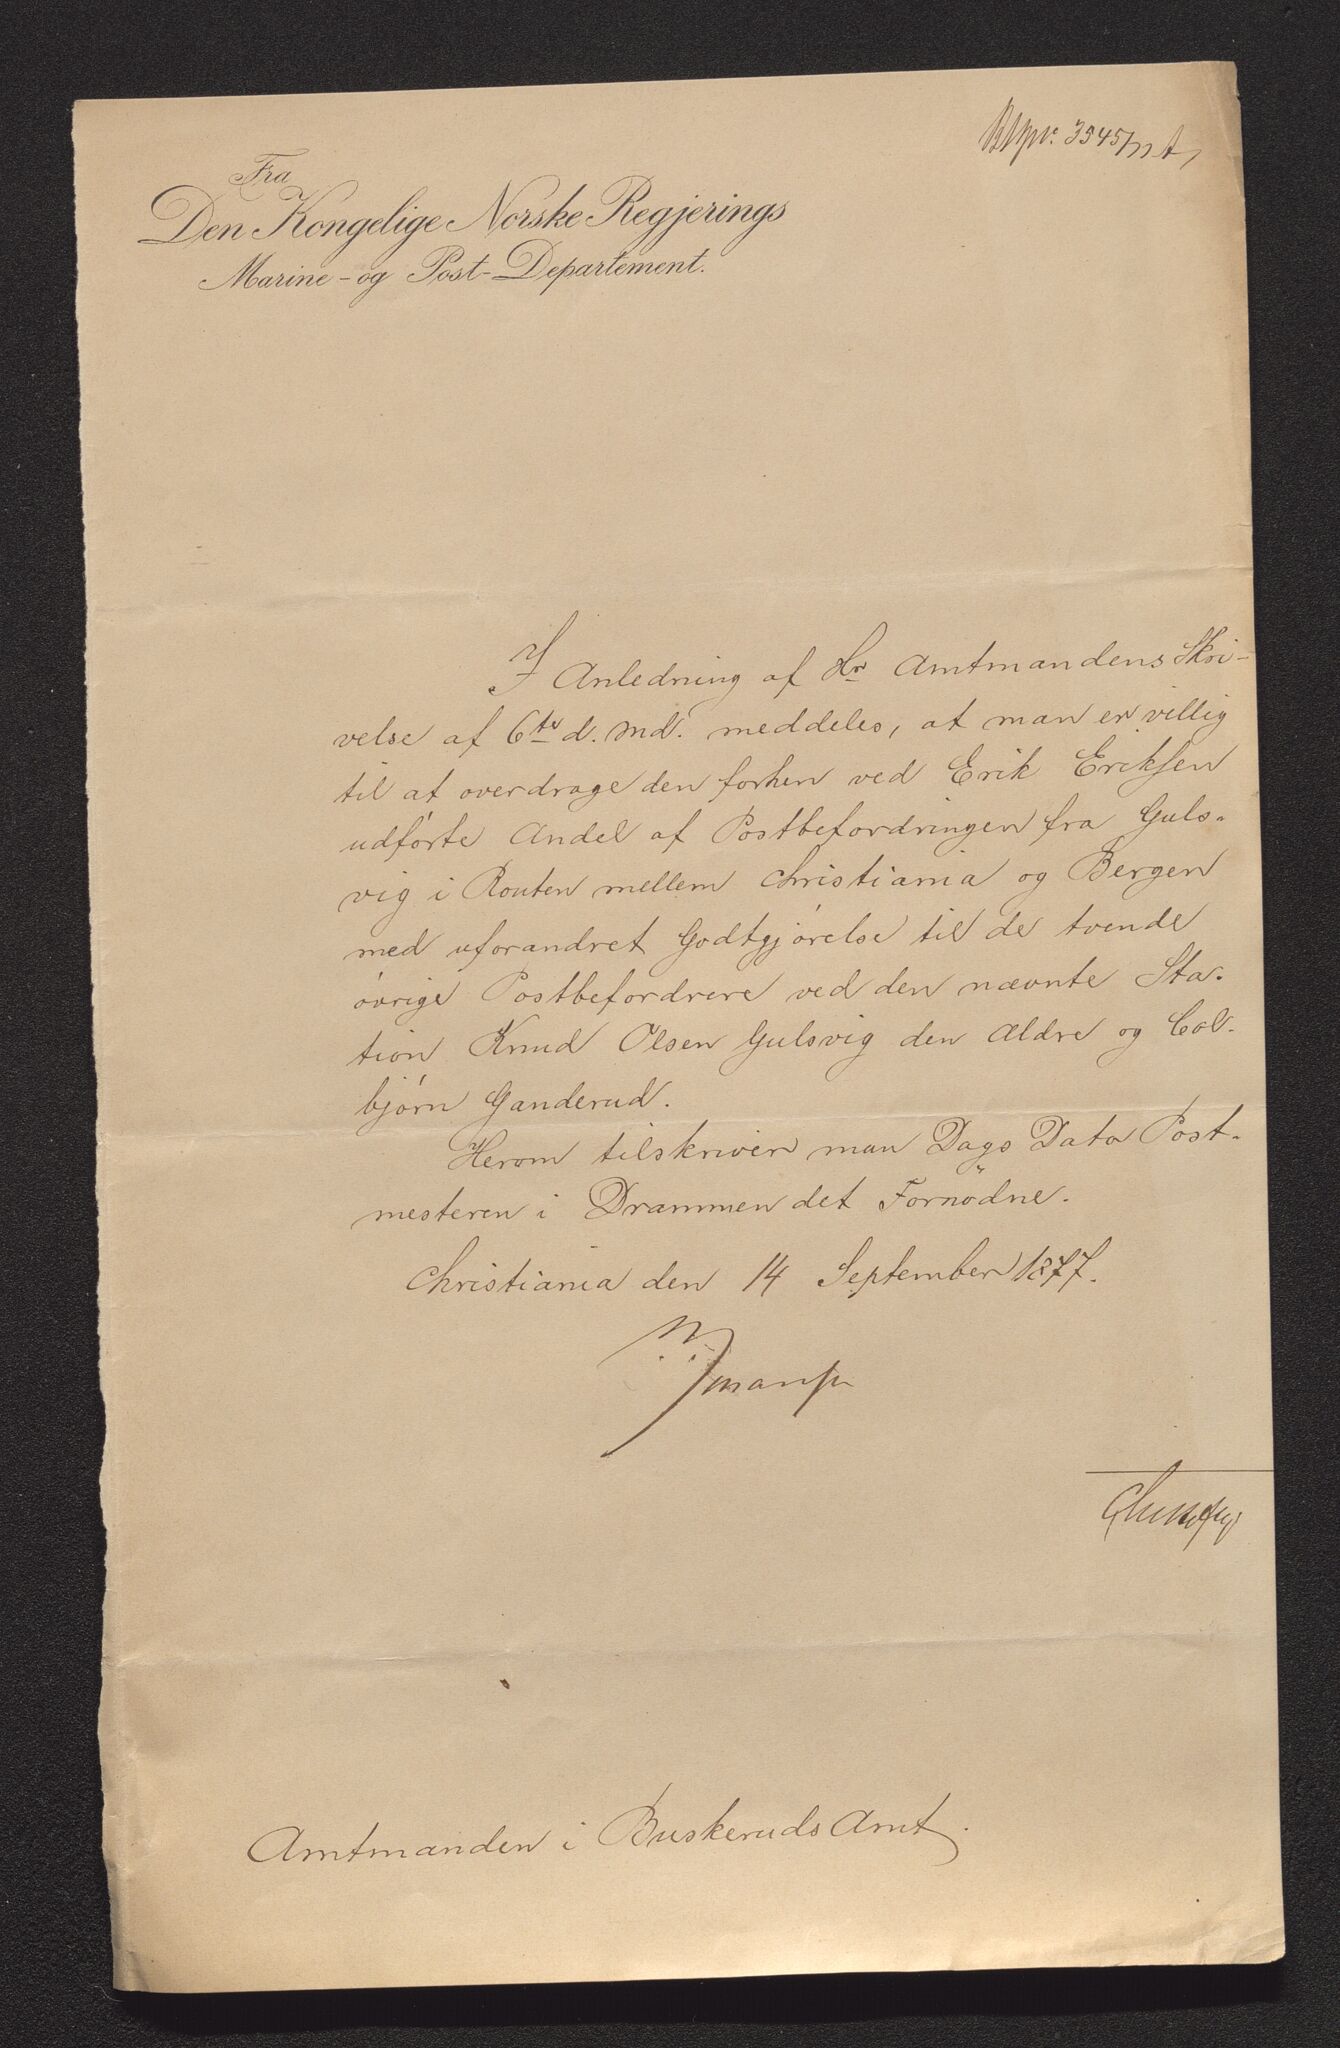 3545
Fra
Den Kongelige Norske Regjerings
Marine-og Post-Departement.
I Anledning af Hr Amtmandens Skri-
velse af 6te d. Md. meddeles, at man er villig
til at overdrage den forhen ved Erik Eriksen
udførte Andel af Postbefordringen fra Guls-
vig i Routen mellem Christiania og Bergen
med uforandret Godtgjørelse til de tvende
øvrige Postbefordrere ved den nævnte Sta-
tion Knud Olsen Gulsvig den Ældre og Col-
bjørn Ganderud.
Herom tilskriver man Dags Dato Post-
mesteren i Drammen det Fornödne.
Christiania den 14 September 1877.
Amtmanden i Buskeruds Amt.